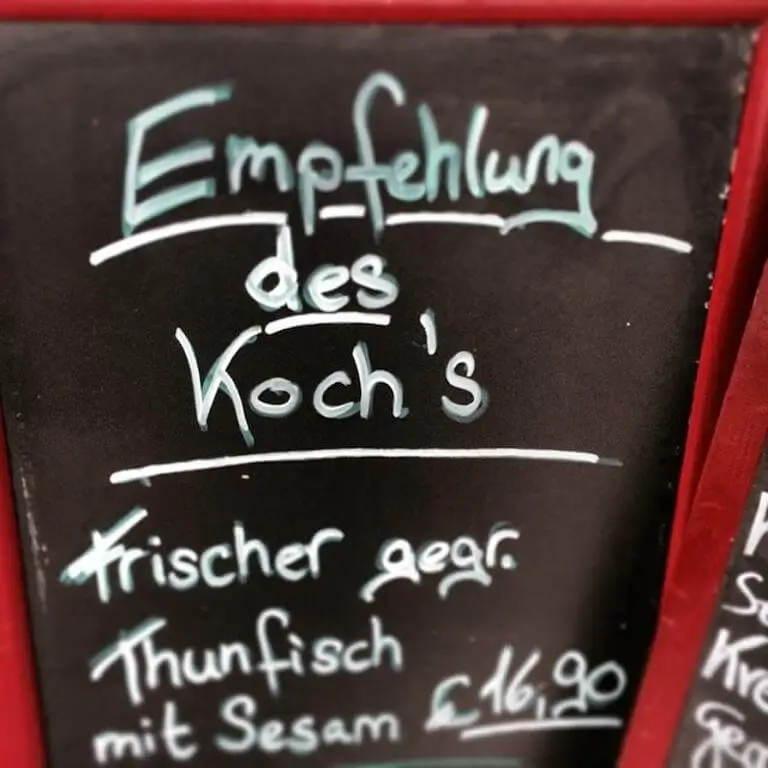 Empfehlung
des
Koch's
Frischer gegr.
Thunfisch
mit Sesam €16,90